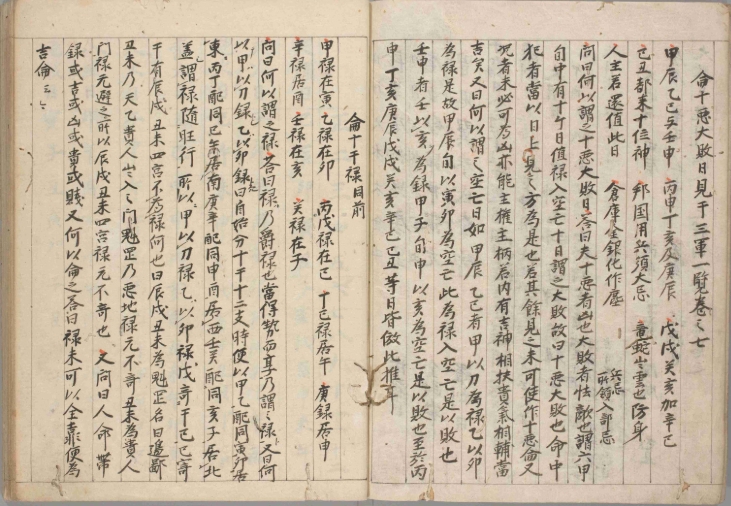 侖十惡大敗日見于三軍一覧巻之七
甲辰乙巳与壬申　丙申丁亥及庚辰　戊戌癸亥加辛巳
己丑都来十位神　邦国用兵須大忌　竜蛇出雲也防身
人主若還值此日　倉庫金銀化作塵
問曰何以謂之十悪大敗日答曰夫十悪者凶也大敗者怯敵也謂六甲
旬中有十ケ日值禄入空亡十日謂之大敗故曰十悪大敗也命中
犯者當以日上見之方為是也若其餘見之未可使作十悪侖又
况者未必可為凶亦能主権主柄居内有吉神相扶貴氣相輔當
吉矣又曰何以謂之空亡日如甲辰乙巳者甲以刀為禄乙以卯
為禄是故甲辰旬以寅卯為空亡此為禄入空亡是以敗也
壬申者壬以亥為録甲子旬申以亥為空亡是以敗也至於丙
申丁亥庚辰戊戌癸亥辛巳己丑等日皆倣此推耳
侖十干禄同前
甲禄在寅　乙禄在卯　丙戊禄在巳　丁己禄居午　庚録居申
辛禄居酉　壬禄在亥　癸禄在子
向曰何以謂之禄答曰禄乃爵禄也當得勢而享乃謂之禄又曰何
以甲以刀録乙以卯録曰自始分十干十二支時便以甲乙配同寅卯居
東丙丁配同巳午居南庚辛配同申酉居西壬癸配同亥子居北
盖謂禄随旺行所以甲以刀禄乙以卯禄戊寄于巳己寄
于有辰戌丑未四宮不為禄何也曰辰戌丑未為魁罡名曰邊鄙
丑未乃天乙貴人出入之門魁罡乃悪地禄元不寄丑未為貴人
門禄元避之所以辰戌丑未四宮禄元不寄也又向曰人命帯
録或吉或凶或貴或賤又何以侖之答曰禄未可以全靠便為
吉侖